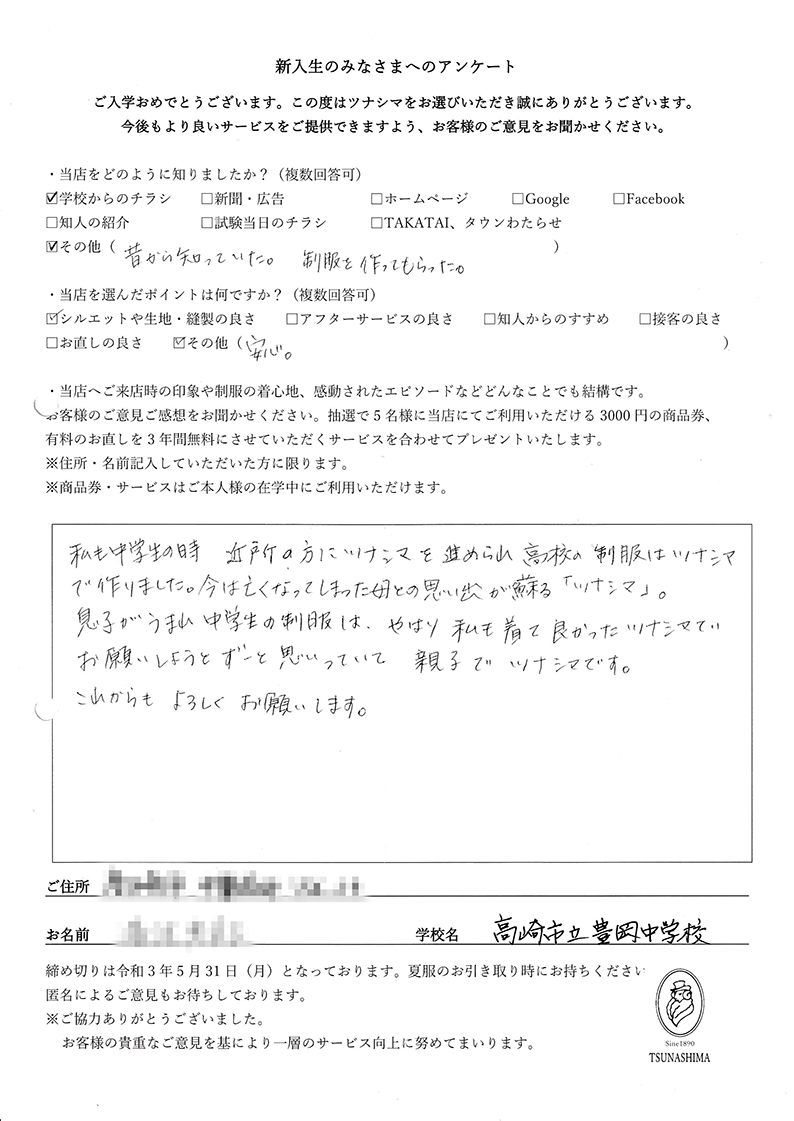 新入生のみなさまへのアンケート
ご入学おめでとうございます。この度はツナシマをお選びいただき誠にありがとうございます。
今後もより良いサービスをご提供できますよう、お客様のご意見をお聞かせください。
・当店をどのように知りましたか?(複数回答可)
☑学校からのチラシ □新聞・広告 □ホームページ □Google □Facebook
□知人の紹介 □試験当日のチラシ □TAKATAI、タウンわたらせ
☑その他( 昔から知っていた。 制服を作ってもらった。 )
・当店を選んだポイントは何ですか?(複数回答可)
☑シルエットや生地・縫製の良さ □アフターサービスの良さ □知人からのすすめ □接客の良さ
□お直しの良さ ☑その他( 安心。 )
・当店へご来店時の印象や制服の着心地、感動されたエピソードなどどんなことでも結構です。
お客様のご意見ご感想をお聞かせください。抽選で5名様に当店にてご利用いただける3000円の商品券、
有料のお直しを3年間無料にさせていただくサービスを合わせてプレゼントいたします。
※住所・名前記入していただいた方に限ります。
※商品券・サービスはご本人様の在学中にご利用いただけます。
私も中学生の時 近所の方にツナシマを進められ 高校の制服はツナシマ
で作りました。今は亡くなってしまった母との思い出が蘇る「ツナシマ」。
息子がうまれ 中学生の制服は、やはり 私も着て良かったツナシマでい
お願いしようと ずーと思いっていて 親子で ツナシマです。
これからも よろしく お願いします。
ご住所
お名前 学校名 高崎市立豊岡中学校
締め切りは令和3年5月31日(月)となっております。夏服のお引き取り時にお持ちください
匿名によるご意見もお待ちしております。
※ご協力ありがとうございました。
お客様の貴重なご意見を基により一層のサービス向上に努めてまいります。
Sine1890
TSUNASHIMA